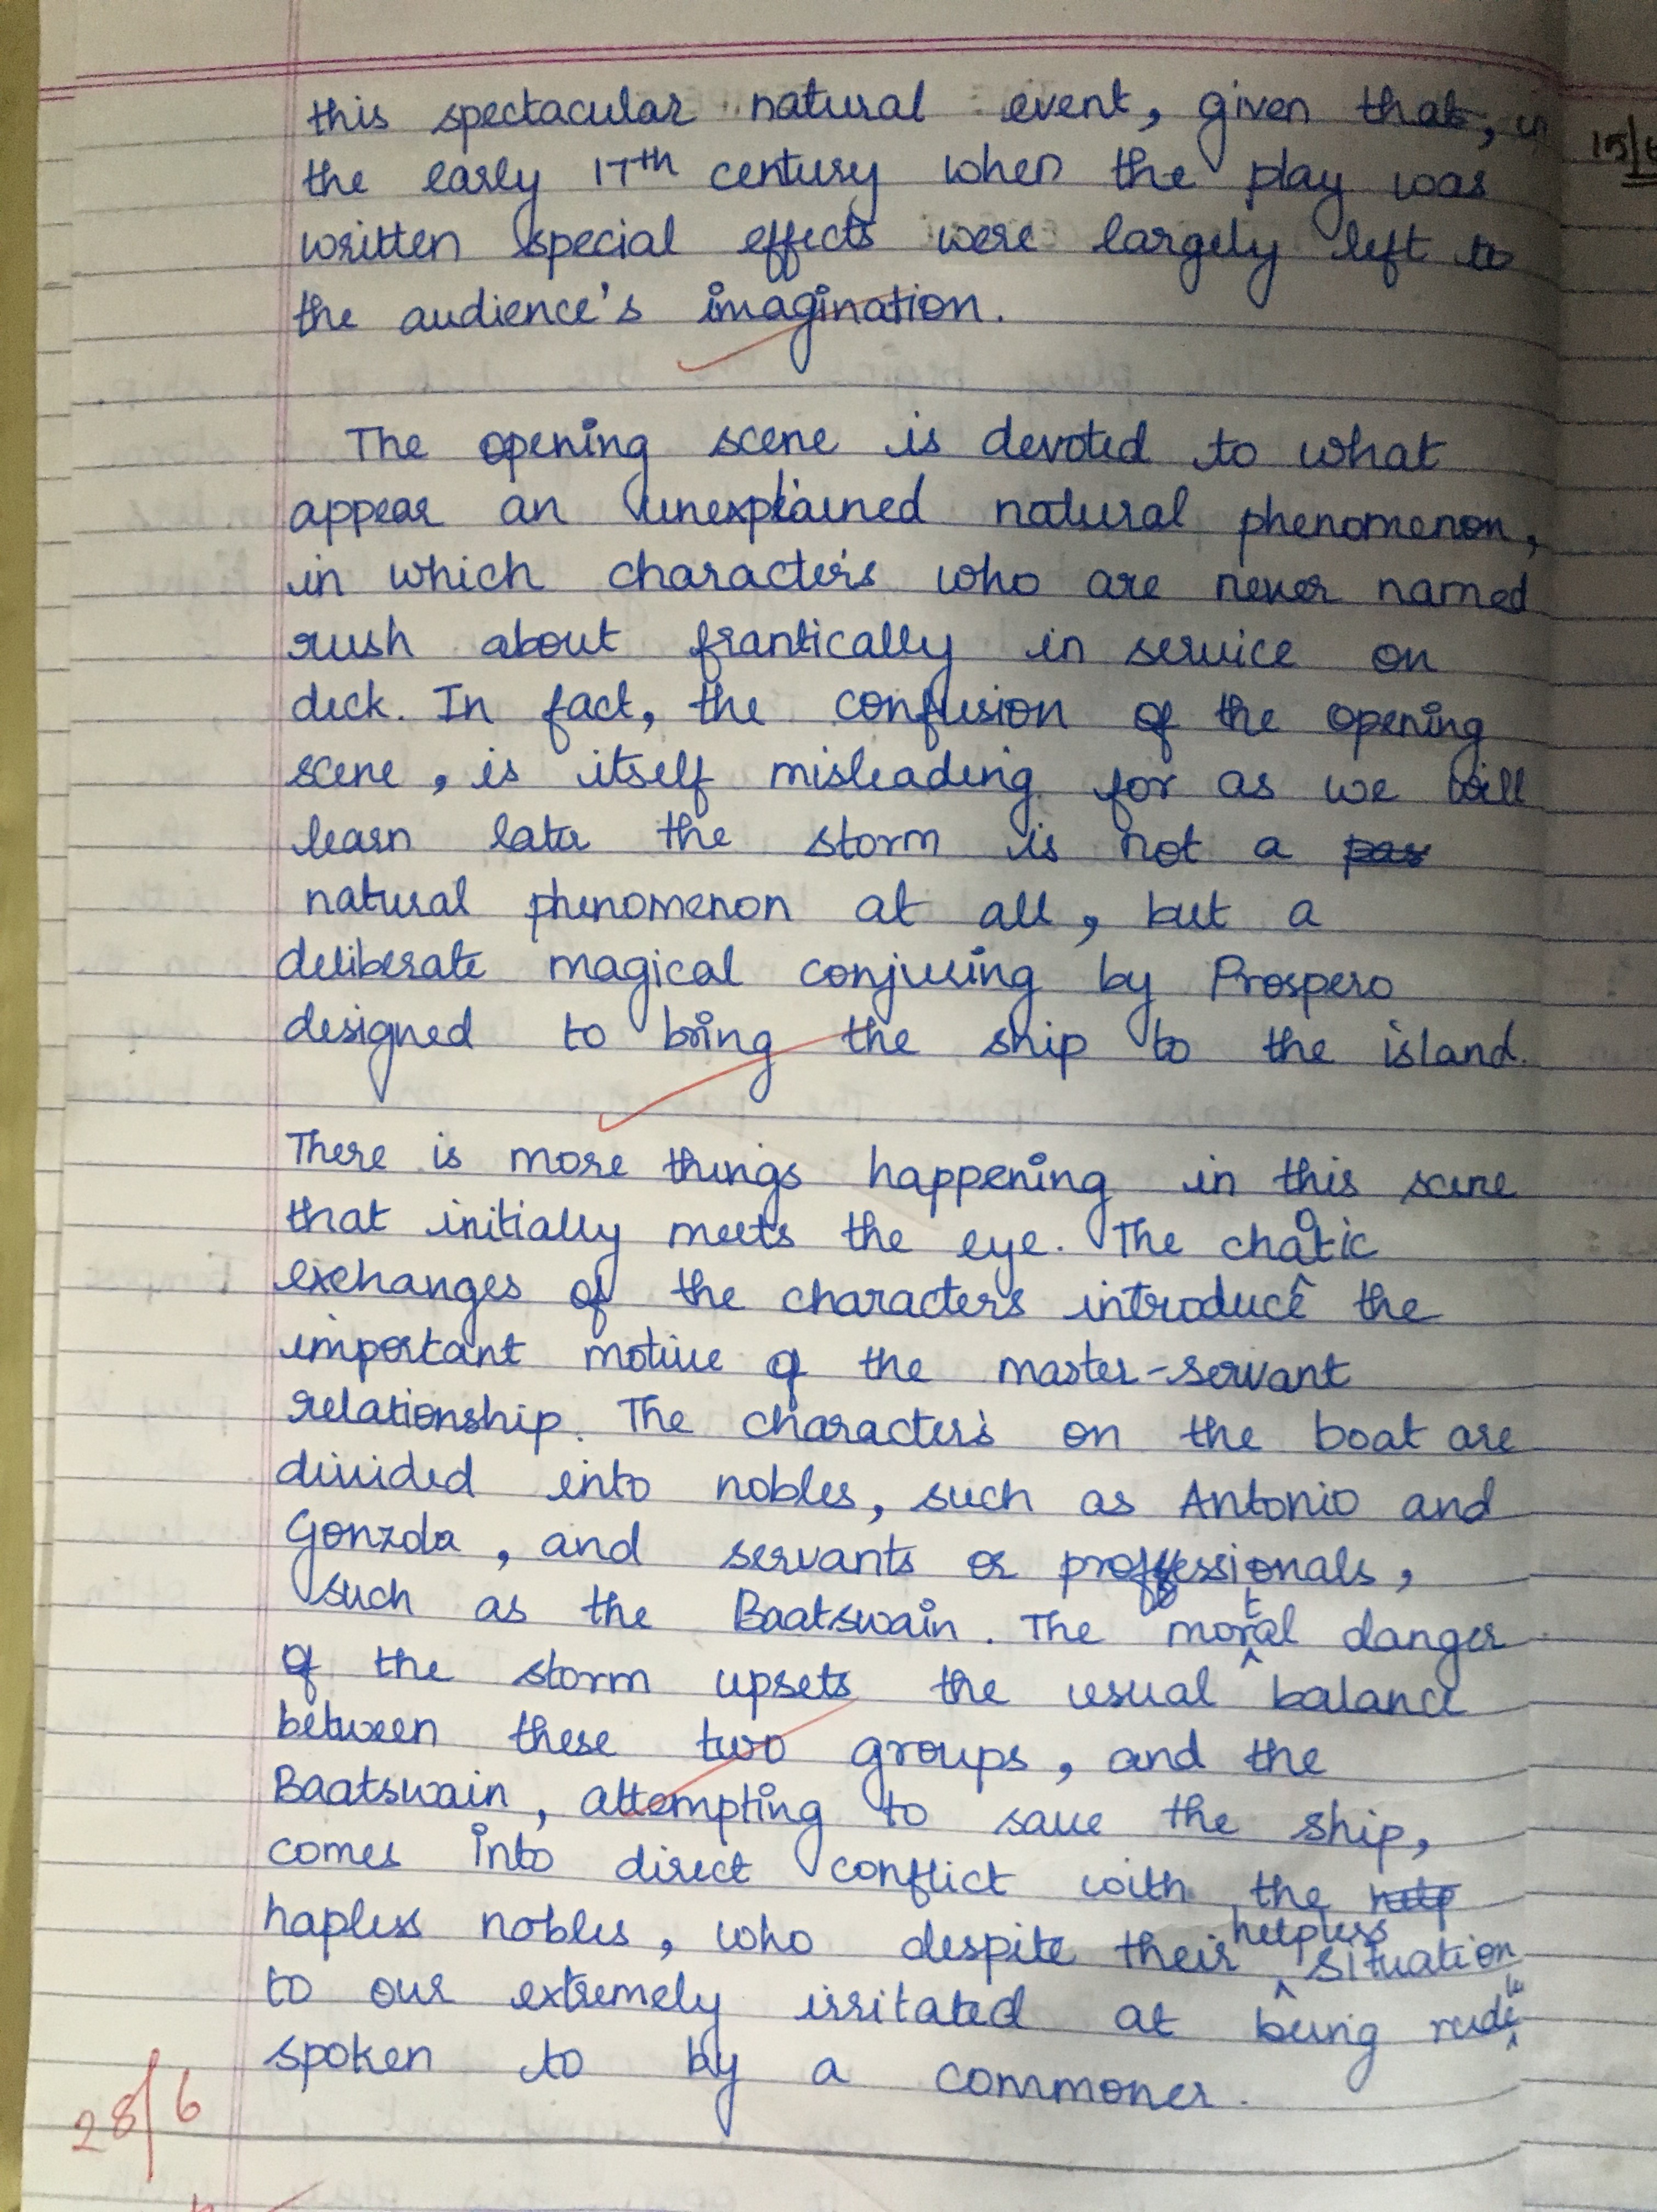 this spectacular natural event, given that, in
the early 17th century when the play was
written special effects were largely left to
the audience's imagination.
The opening scene is devoted to what
appear an unexplained natural phenomenon,
in which characters who are never named
rush about frantically in service on
deck. In fact, the confusion of the opening
scene, is itself misleading for as we will
learn later the storm is not a
natural phenomenon at all, but a
deliberate magical conjuring by Prospero
designed to bring the ship to the island.
There is more things happening in this scene
that initially meets the eye. The chaotic
exchanges of the characters introduce the
important motive of the master-servant
relationship. The characters on the boat are
divided into nobles, such as Antonio and
Gonzola, and servants or proffessionals,
such as the Baatswain. The mortal danger
of the storm upsets the usual balance
between these two groups, and the
Baatswain, attempting to save the ship,
comes into direct conflict with the
hapless nobles, who despite their helpless situation
to our extremely irritated at being rudely
spoken to by a commoner.
28/6